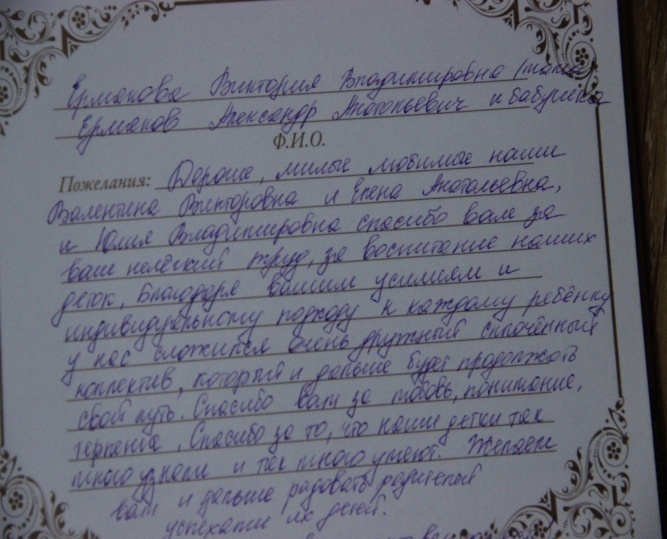 Ермакова Виктория Владимировна (мама)
Ермаков Александр Анатольевич и бабушка
Ф.И.О.
Пожелания: Дорогие, милые любимые наши
Валентина Викторовна и Елена Анатольевна,
и Юлия Владимировна спасибо вам за
ваш нелёгкий труд, за воспитание наших
деток, Благодаря вашим усилиям и
индивидуальному подходу к каждому ребёнку
у нас сложился очень дружный сплочённый
коллектив, который и дальше будет продолжать
свой путь. Спасибо вам за любовь, понимание,
терпение. Спасибо за то, что наши детки так
много узнали и так много умеют. Желаем
вам и дальше радовать родителей
успехами их детей.